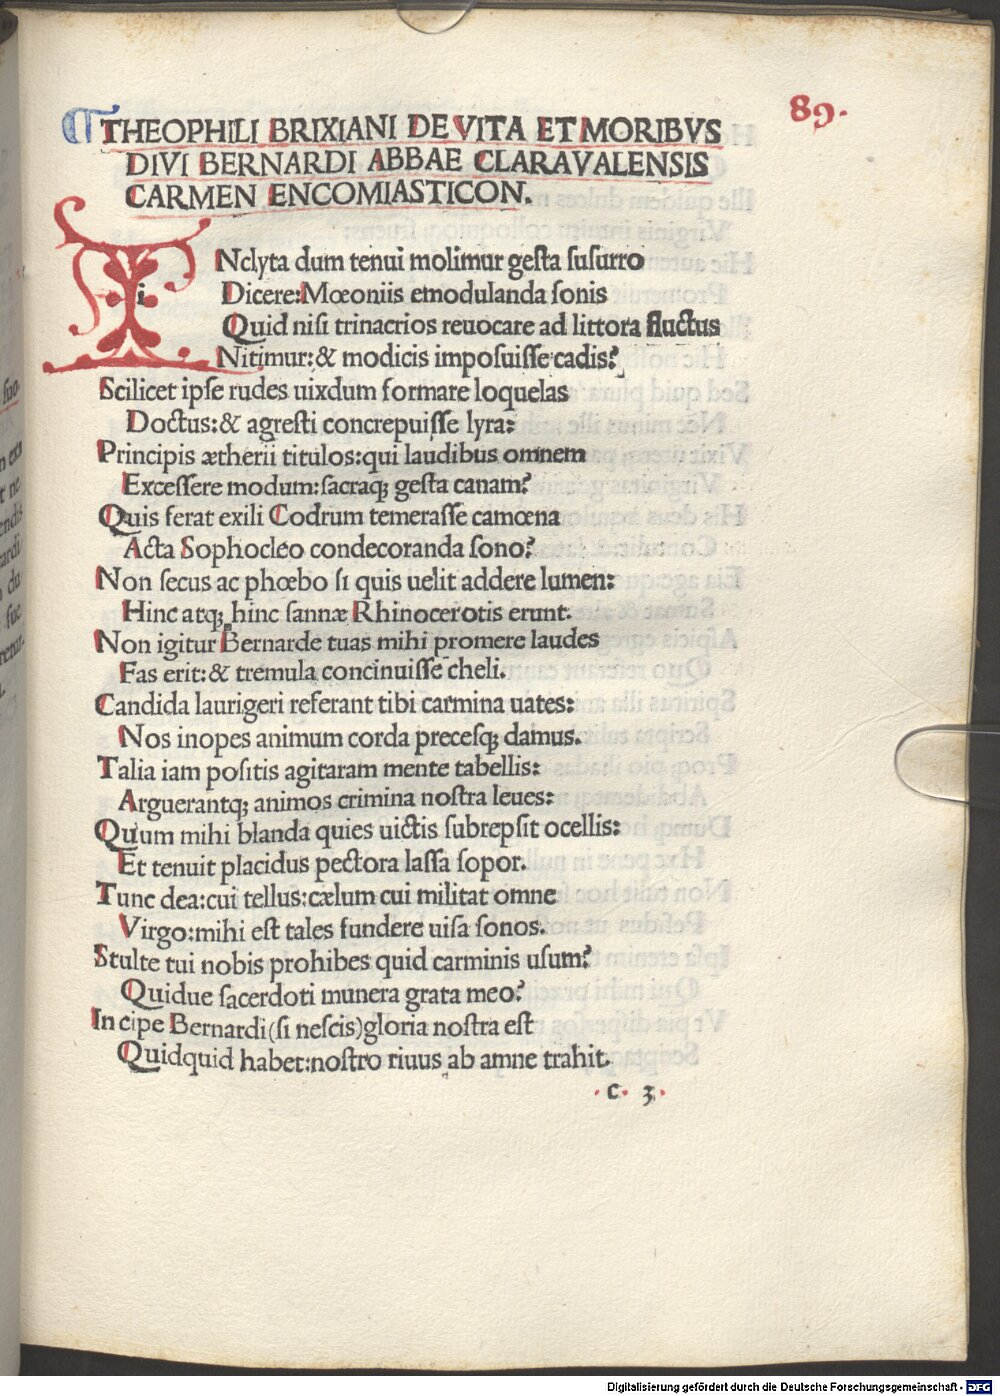 89.
THEOPHILI BRIXIANI DE VITA ET MORIBVS
DIVI BERNARDI ABBAE CLARAVALENSIS
CARMEN ENCOMIASTICON.
INclyta dum tenui molimur gesta susurro
Dicere: Mœoniis emodulanda sonis
Quid nisi trinacrios reuocare ad littora fluctus
Nitimur: & modicis imposuisse cadis?
Scilicet ipse rudes uixdum formare loquelas
Doctus: & agresti concrepuisse lyra:
Principis ætherii titulos: qui laudibus omnem
Excessere modum: sacraq; gesta canam?
Quis ferat exili Codrum temerasse camœna
Acta Sophocleo condecoranda sono?
Non secus ac phœbo si quis uelit addere lumen:
Hinc atq; hinc sannæ Rhinocerotis erunt.
Non igitur Bernarde tuas mihi promere laudes
Fas erit: & tremula concinuisse cheli.
Candida laurigeri referant tibi carmina uates:
Nos inopes animum corda precesq; damus.
Talia iam positis agitaram mente tabellis:
Arguerantq; animos crimina nostra leues:
Quum mihi blanda quies uictis subrepsit ocellis:
Et tenuit placidus pectora lassa sopor.
Tunc dea: cui tellus: cælum cui militat omne
Virgo: mihi est tales fundere uisa sonos.
Stulte tui nobis prohibes quid carminis usum?
Quidue sacerdoti munera grata meo?
Incipe Bernardi (si nescis) gloria nostra est
Quidquid habet: nostro riuus ab amne trahit.
c 3
Digitalisierung gefördert durch die Deutsche Forschungsgemeinschaft - DFG